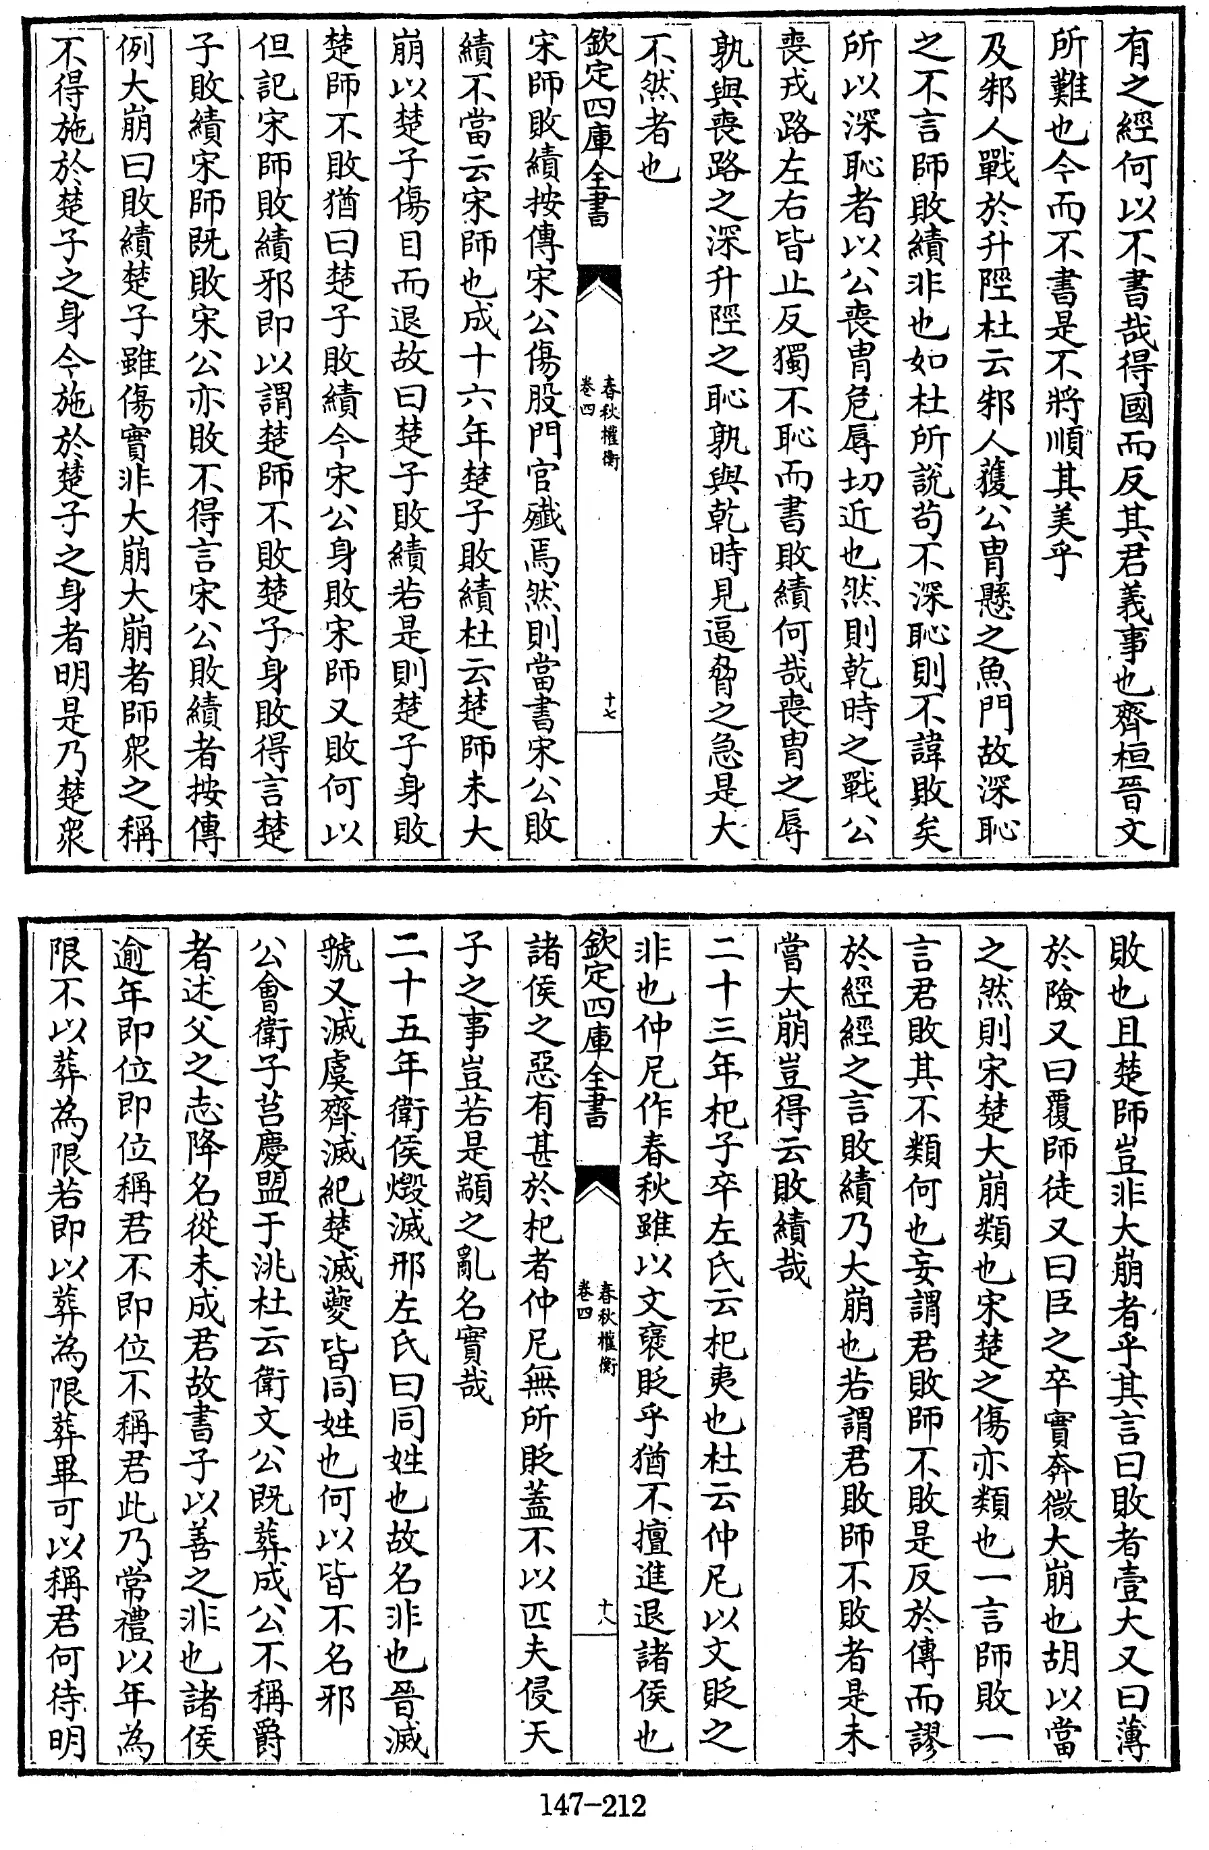 有之經何以不書哉得國而反其君義事也齊桓晉文
所難也今而不書是不將順其美乎
及邾人戰於升陘杜云邾人獲公胄懸之魚門故深恥
之不言師敗績非也如杜所説苟不深恥則不諱敗矣
所以深恥者以公喪胄危辱切近也然則乾時之戰公
喪戎路左右皆止反獨不恥而書敗績何哉喪胄之辱
孰與喪路之深升陘之恥孰與乾時見逼脅之急是大
不然者也
欽定四庫全書
春秋權衡
卷四
十七
宋師敗績按傳宋公傷股門官殱焉然則當書宋公敗
績不當云宋師也成十六年楚子敗績杜云楚師未大
崩以楚子傷目而退故曰楚子敗績若是則楚子身敗
楚師不敗猶曰楚子敗績今宋公身敗宋師又敗何以
但記宋師敗績邪即以謂楚師不敗楚子身敗得言楚
子敗績宋師既敗宋公亦敗不得言宋公敗績者按傳
例大崩曰敗績楚子雖傷實非大崩大崩者師衆之稱
不得施於楚子之身今施於楚子之身者明是乃楚衆
敗也且楚師豈非大崩者乎其言曰敗者壹大又曰薄
於險又曰覆師徒又曰臣之卒實奔微大崩也胡以當
之然則宋楚大崩類也宋楚之傷亦類也一言師敗一
言君敗其不類何也妄謂君敗師不敗是反於傳而謬
於經經之言敗績乃大崩也若謂君敗師不敗者是未
嘗大崩豈得云敗績哉
二十三年杞子卒左氏云杞夷也杜云仲尼以文貶之
非也仲尼作春秋雖以文襃貶乎猶不擅進退諸侯也
欽定四庫全書
春秋權衡
卷四
十八
諸侯之惡有甚於杞者仲尼無所貶蓋不以匹夫侵天
子之事豈若是顓之亂名實哉
二十五年衛侯燬滅邢左氏曰同姓也故名非也晉滅
虢又滅虞齊滅紀楚滅夔皆同姓也何以皆不名邪
公會衛子莒慶盟于洮杜云衛文公既葬成公不稱爵
者述父之志降名從未成君故書子以善之非也諸侯
逾年即位即位稱君不即位不稱君此乃常禮以年為
限不以葬為限若即以葬為限葬畢可以稱君何待明
147-212